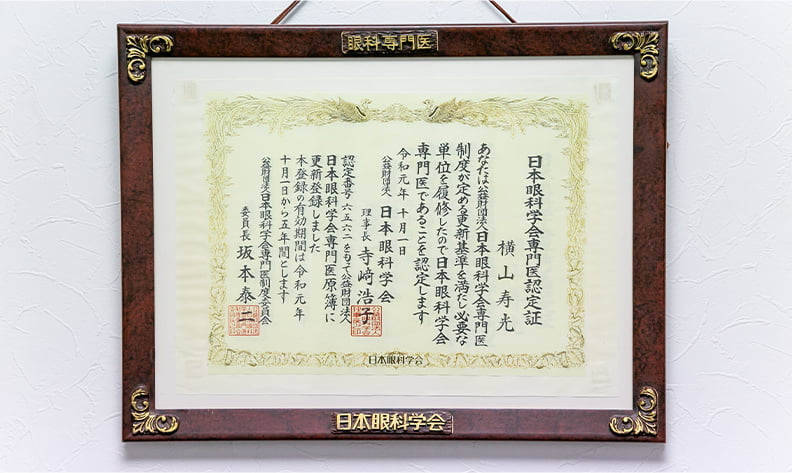 眼科専門医
日本眼科学会専門医認定証
横山寿光
あなたは公益財団法人日本眼科学会専門医
制度が定める更新基準を満たし必要な
単位を履修したので日本眼科学会
専門医であることを認定します
令和元年 十月一日
公益財団法人 日本眼科学会
理事長 寺﨑浩子
認定番号 六五六二 をもって公益財団法人
日本眼科学会専門医原簿に
更新登録しました
本登録の有効期間は令和元年
十月一日から五年間とします
公益財団法人日本眼科学会専門医制度委員会
委員長 坂本泰二
日本眼科学会
日本眼科学会